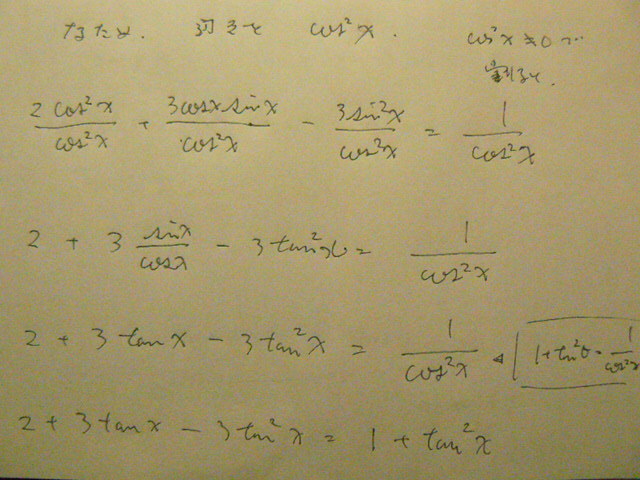 なため、 両辺を cos²x. cos²x≠0で
割ると.
\frac{2cos²x}{cos²x} + \frac{3cosx sinx}{cos²x} - \frac{3sin²x}{cos²x} = \frac{1}{cos²x}
2 + 3\frac{sinx}{cosx} - 3tan²x = \frac{1}{cos²x}
2 + 3tanx - 3tan²x = \frac{1}{cos²x} ◁ 1+tan²θ = \frac{1}{cos²x}
2 + 3tanx - 3tan²x = 1 + tan²x